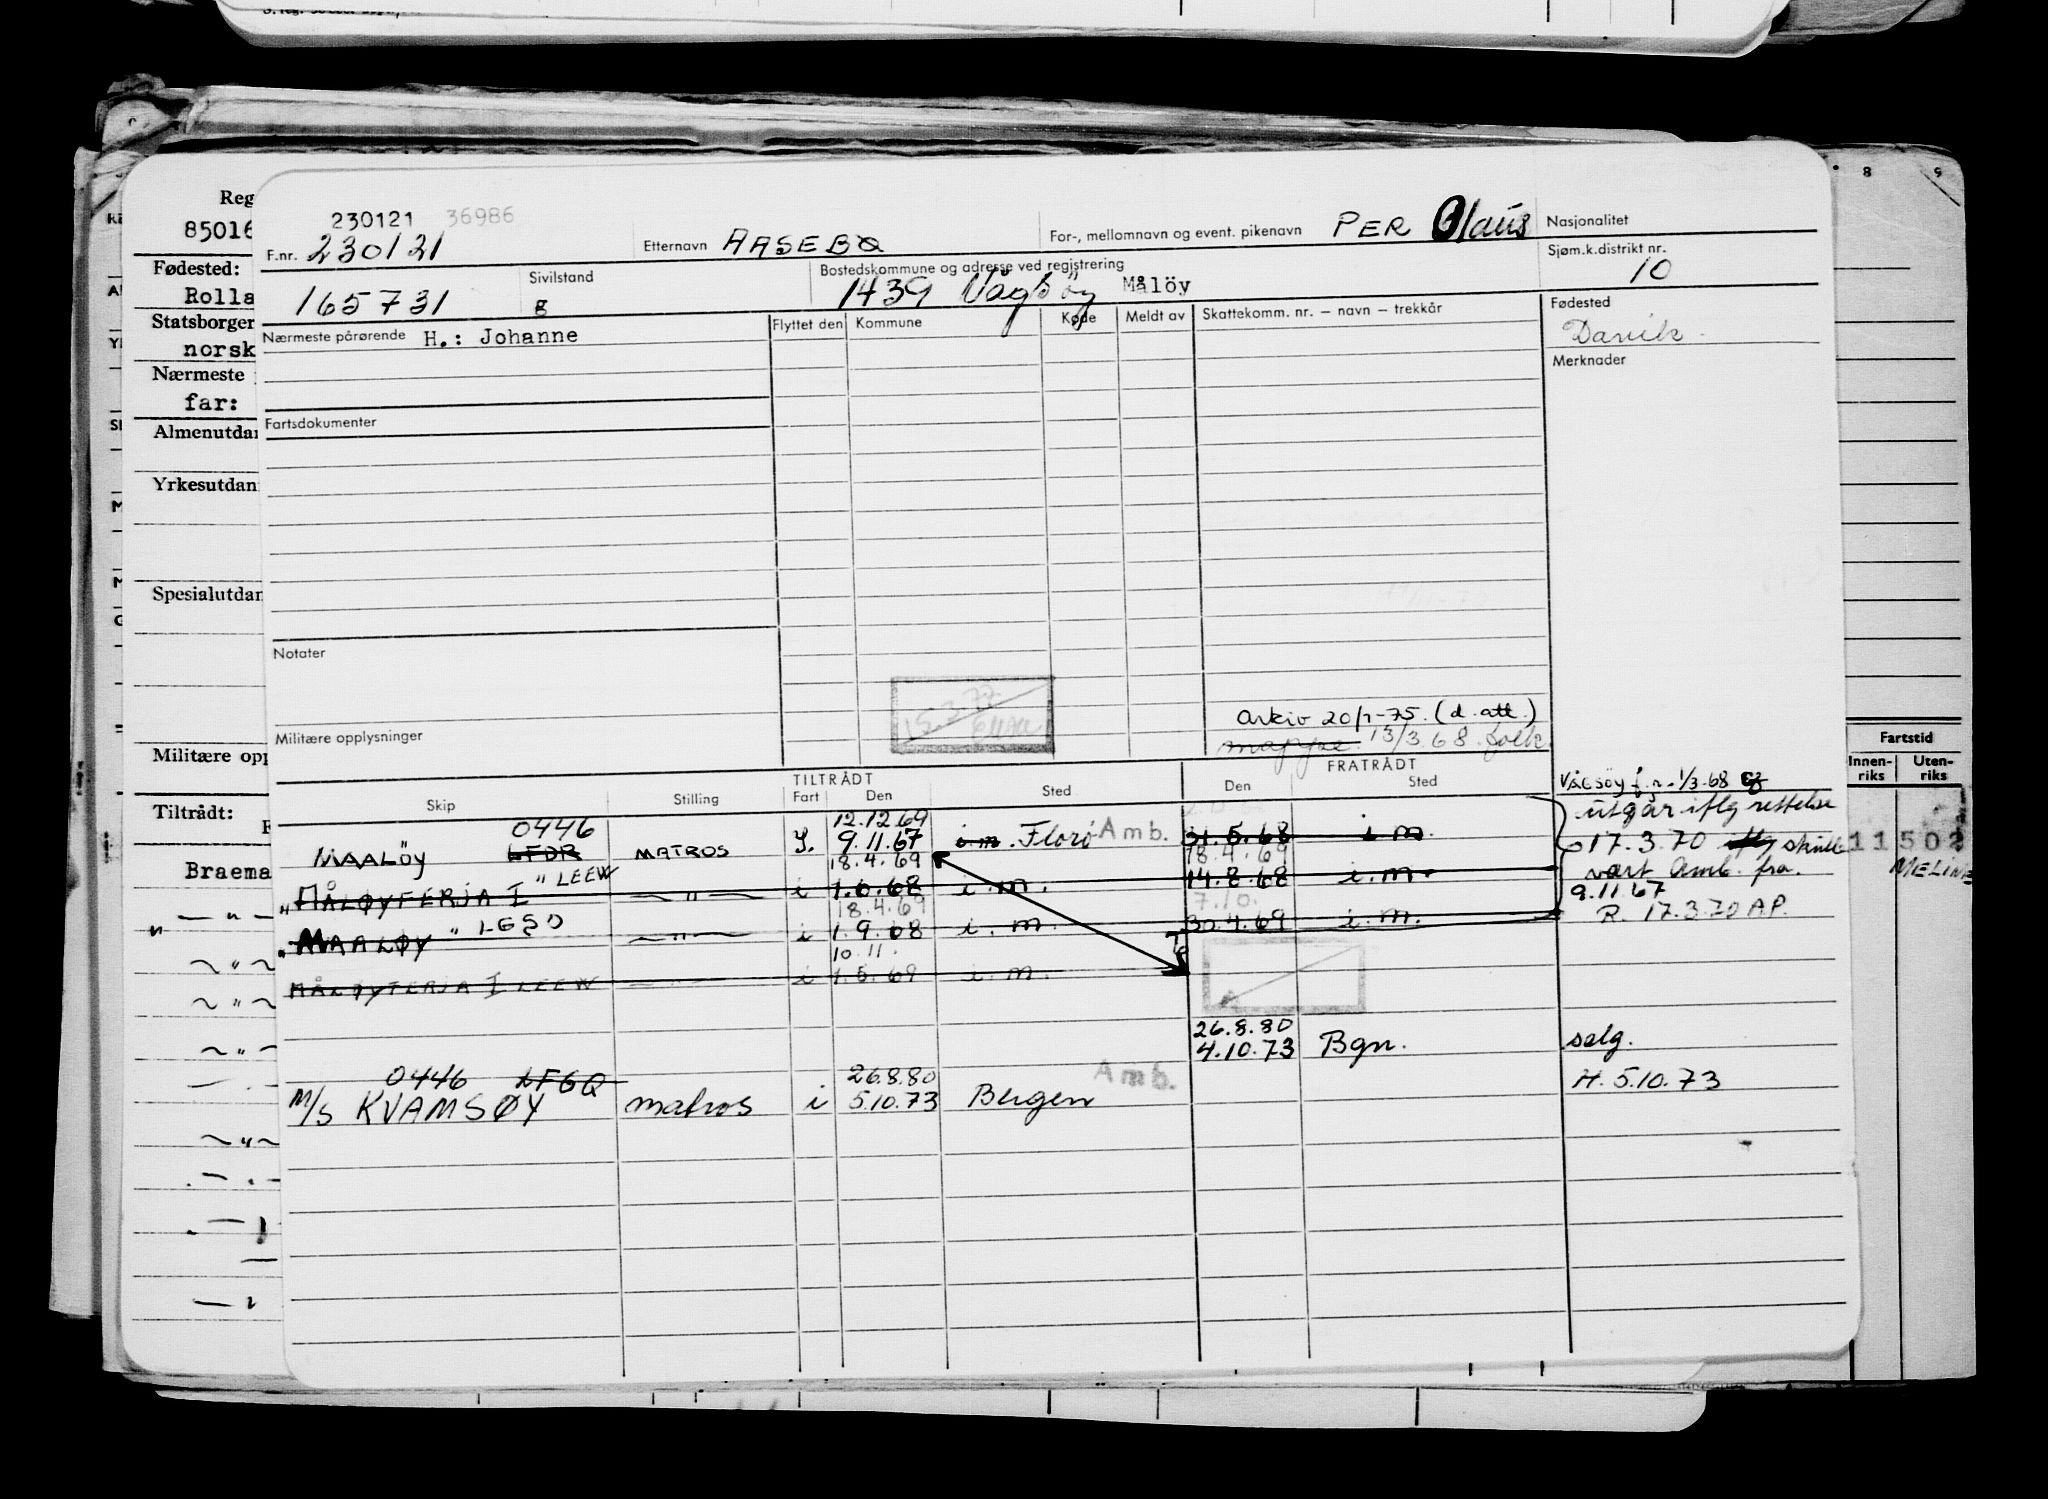 230121 36986
F.nr. 230121
Etternavn AASEBØ
For-, mellomnavn og event. pikenavn PER Olaus
Nasjonalitet
165731
Sivilstand
g
Bostedskommune og adresse ved registrering
1439 Vågsöy Målöy
Sjøm.k.distrikt nr.
10
Nærmeste pårørende H.: Johanne
Flyttet den Kommune Køde Meldt av Skattekomm. nr. – navn – trekkår
Fødested
Davik.
Merknader
Fartsdokumenter
Notater
15.3.77
Militære opplysninger
arkiv 20/1-75. (d. att.)
mappe 13/3.68.
TILTRÅDT FRATRÅDT
Skip Stilling Fart Den Sted Den Sted
VÅGSÖY f.r. 1/3-68
0446 12.12.69
MAALÖY LFDR MATROS 9.11.67 i.m. Florö Amb. 31.5.68 i m.
utgår iflg rettelse
17.3.70 skulle
vært Amb. fra
9.11.67
R. 17.3.70 A.P.
18.4.69 18.4.69
" MÅLØYFERJA I " LEEW — " — i 1.6.68 i.m. 14.8.68 i.m.
18.4.69 7.10.
" MAALØY " LEGD — " — i 1.9.68 i.m. 30.4.69 i.m.
10.11.
MÅLØYFERJA I LEEW i 1.5.69 i.m.
26.8.80
4.10.73 Bgn. selg.
0446 LFGQ 26.8.80 Amb.
M/S KVAMSØY matros i 5.10.73 Bergen H. 5.10.73
Reg
85016
Fødested:
Rolla
Statsborger
norsk
Nærmeste
far:
Almenutdan
Yrkesutdan
Spesialutdan
Militære opp
Tiltrådt:
Braema
8 9
Fartstid
Innen-
riks
Uten-
riks
11502